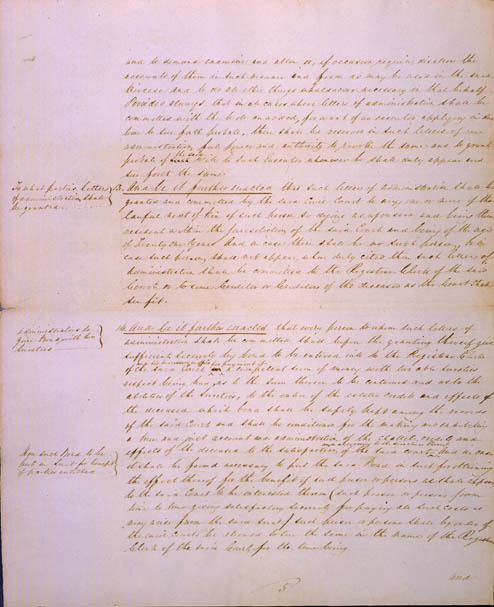 and to demand examine and allow or, if occasion require, disallow the
accounts of them in such manner and form as may be used in the said
and to do all other things whatsoever necessary in that behalf
Provided always that in all cases where letters of administration shall be
committed with the Will annexed, for want of an executor applying in due
time to sue forth probate, there shall be reserved in such letters of
administration, full power and authority to revoke the same and to grant
probate of the said Will to such Executor whenever he shall duly appear and
sue forth the same
To what parties letters
of administration shall
be granted
And be it further enacted that such letters of administration shall be
granted and committed by the said Civil Court to any one or more of the
lawful next of kin of such person so dying as aforesaid and being then
resident within the jurisdiction of the said Court and being of the age
of Twenty one Years And in case there shall be no such person, or in
case such person shall not appear, when duly cited then such letters of
Administration shall be committed to the Registrar Clerk of the said
Court, or to some Creditor or Creditors of the deceased as the Court shall
see fit.
Administrators to
give Bond with two
Sureties
And be it further enacted that every person to whom such letters of
administration shall be committed shall before the granting thereof give
sufficient security by bond to be entered into to the Registrar Clerk
of the said Court for the payment of a competent sum of money with two able Sureties
respect being had, as to the sum therein to be contained and as to the
abilities of the Sureties, to the value of the estates credits and effects of
the deceased which bond shall be safely kept among the records
of the said Court and shall be conditioned for the making and exhibiting
a true and just account and administration of the estates credits and
effects of the deceased to the satisfaction of the said Court And in case
How such Bond to be
put in Suit for benefit
of parties entitled
it shall be found necessary to put the said Bond in suit for obtaining
the effect thereof for the benefit of such person or persons as shall appear
to the said Court to be interested therein (such person or persons from
time to time giving satisfactory security for paying all such costs as
may arise from the said Suit) such person or persons shall by order of
the said Court be allowed to sue the same in the name of the Registrar
Clerk of the said Court, for the time being
and
5